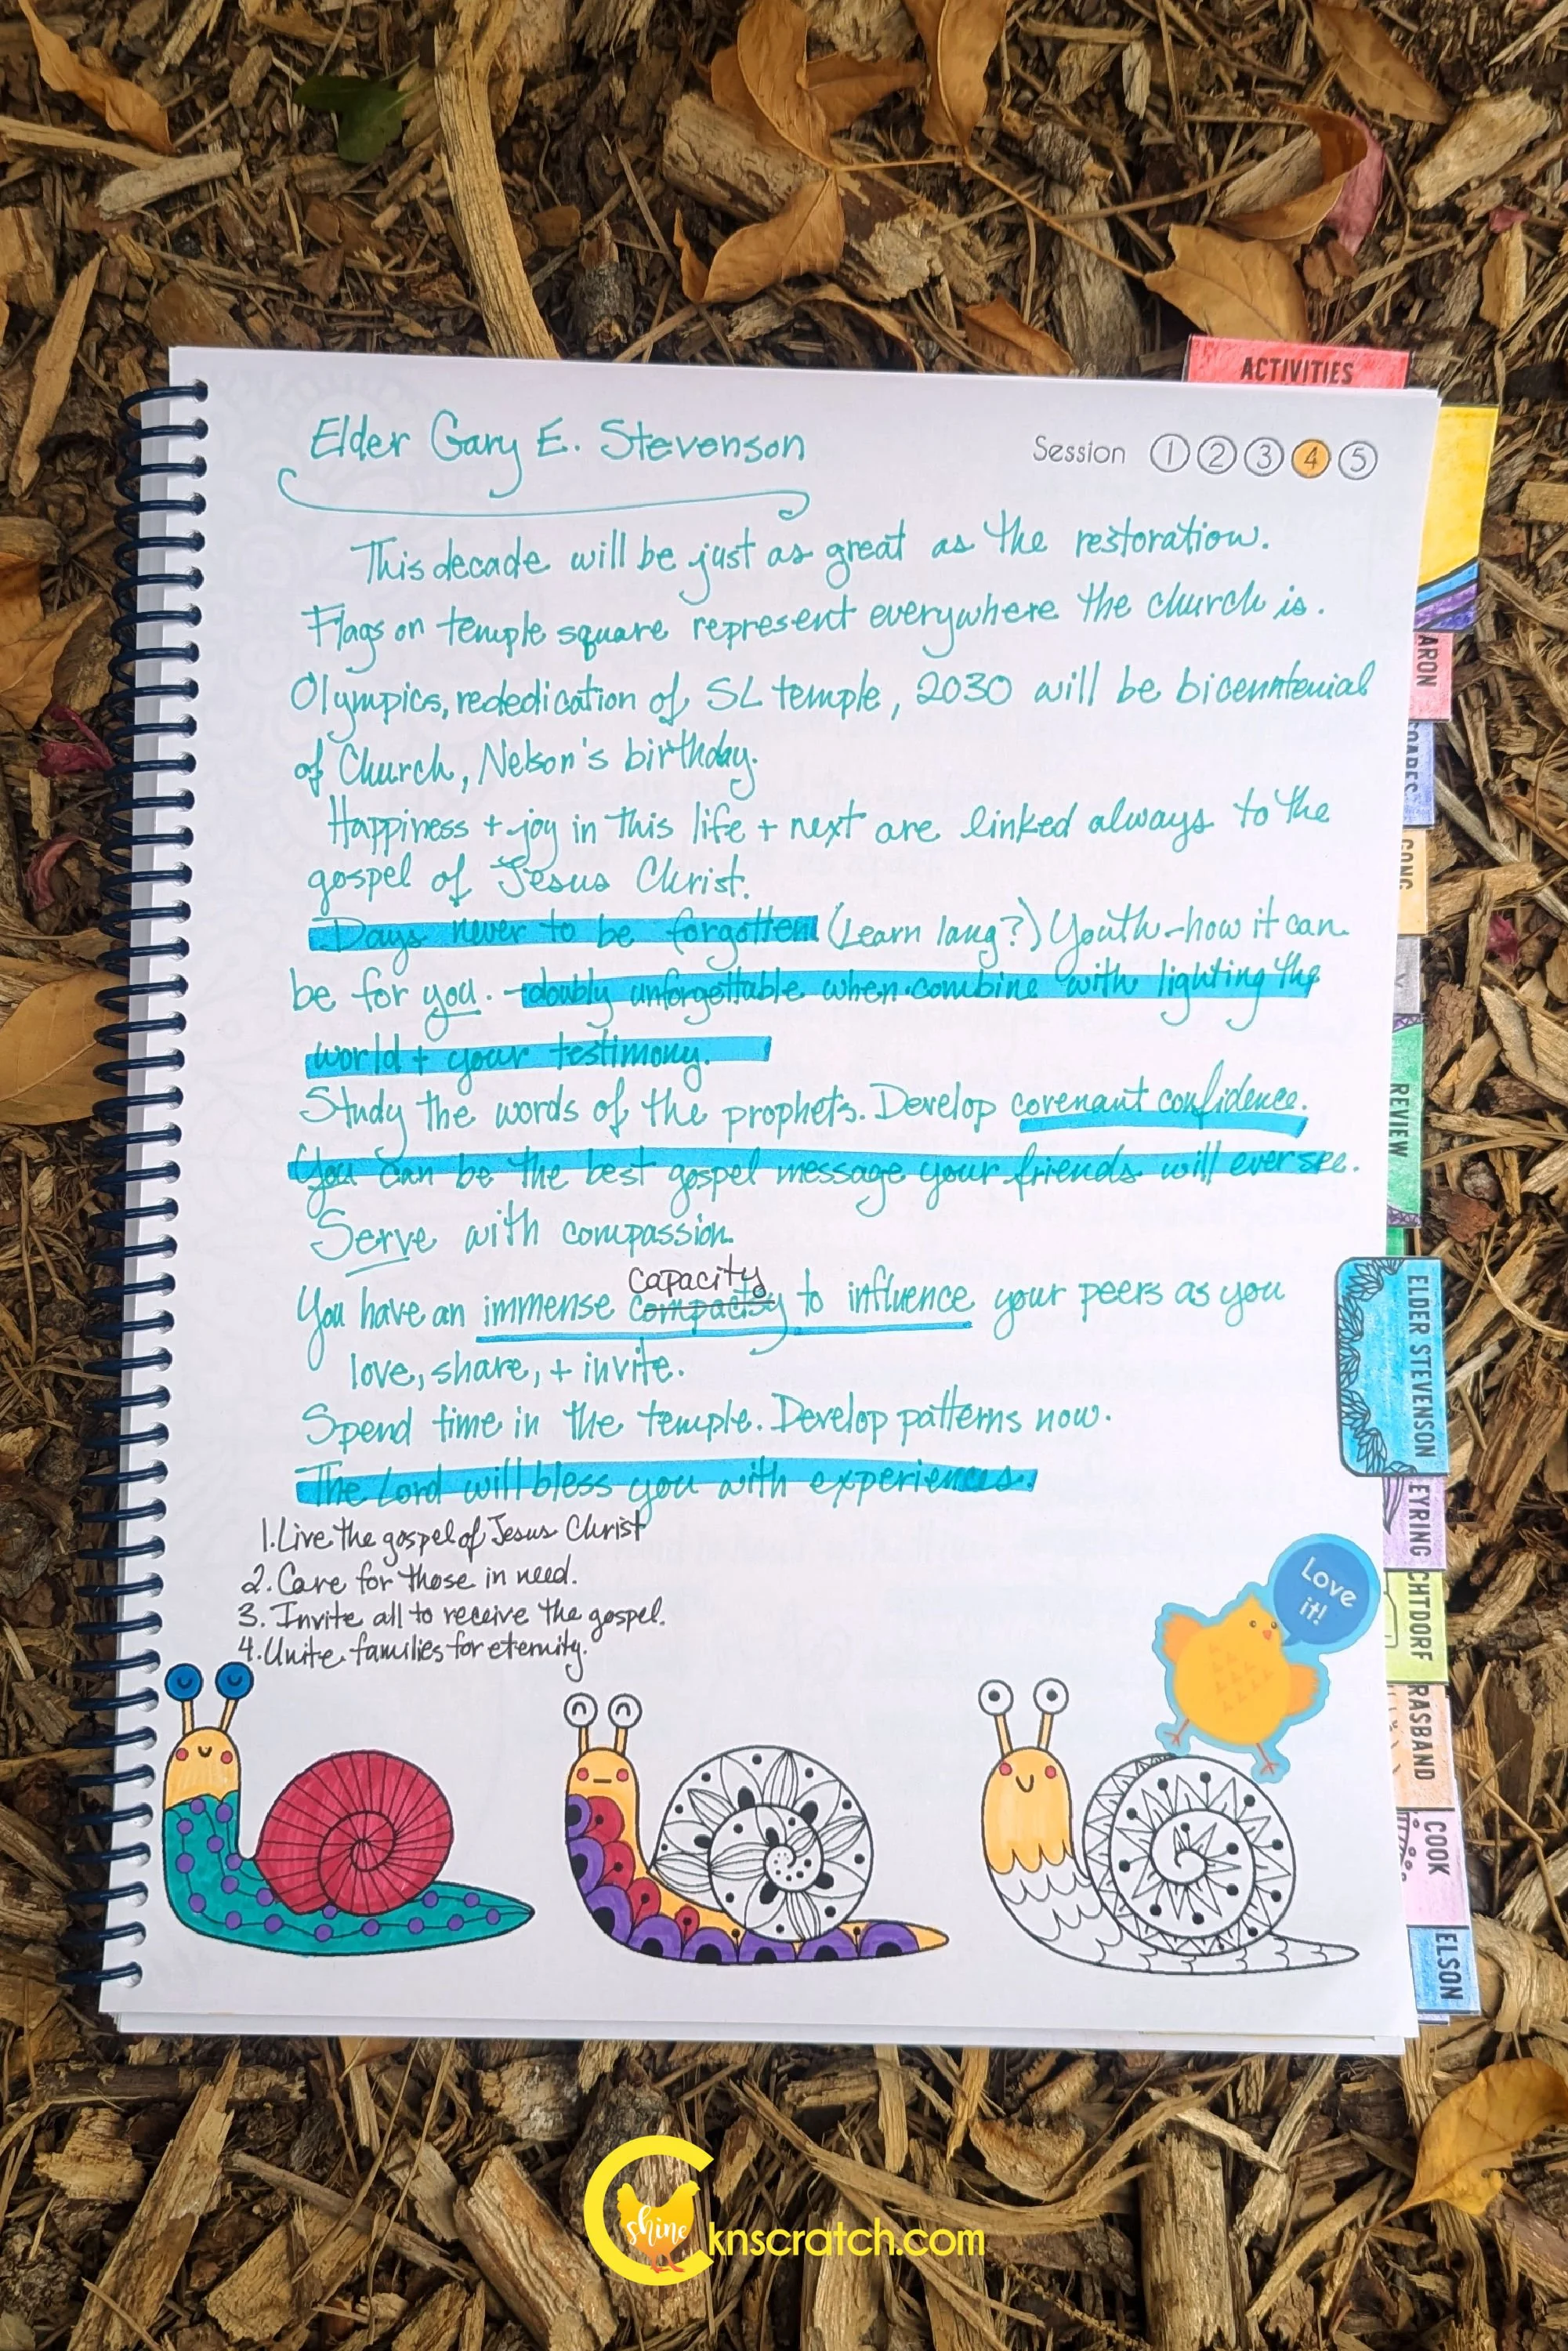 ACTIVITIES
Elder Gary E. Stevenson
Session 1 2 3 4 5
This decade will be just as great as the restoration.
Flags on temple square represent everywhere the church is.
Olympics, rededication of SL temple, 2030 will be bicenntenial
of Church, Nelson's birthday.
Happiness + joy in this life + next are linked always to the
gospel of Jesus Christ.
Days never to be forgotten (Learn lang?) Youth-how it can
be for you. -doubly unforgettable when combine with lighting the
world + your testimony.
Study the words of the prophets. Develop covenant confidence.
You can be the best gospel message your friends will ever see.
Serve with compassion.
capacity
You have an immense compacity to influence your peers as you
love, share, + invite.
Spend time in the temple. Develop patterns now.
The Lord will bless you with experiences.
1. Live the gospel of Jesus Christ
2. Care for those in need.
3. Invite all to receive the gospel.
4. Unite families for eternity.
Love
it!
ARON
SOARES
GONG
REVIEW
ELDER STEVENSON
EYRING
CHTDORF
RASBAND
COOK
ELSON
shine
knscratch.com